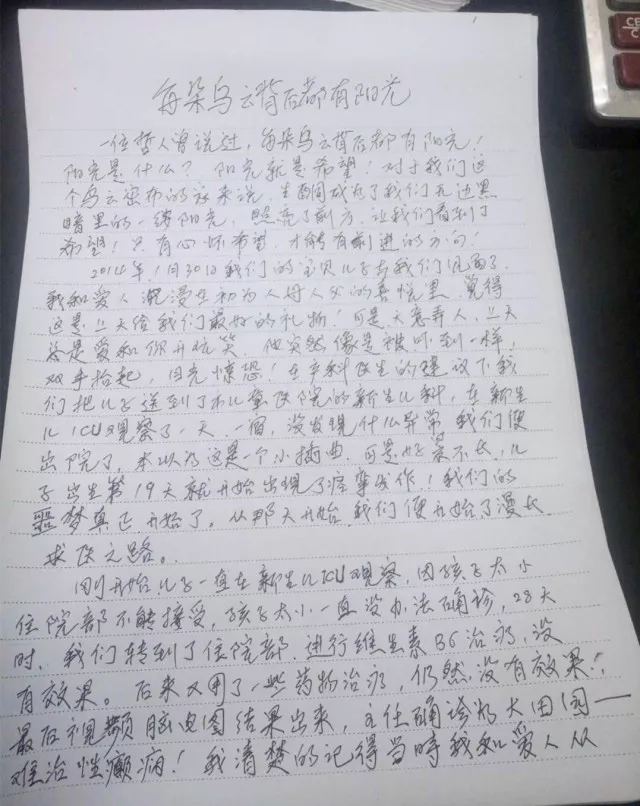 每朵乌云背后都有阳光
一位哲人曾说过，每朵乌云背后都有阳光！
阳光是什么？阳光就是希望！对于我们这
个乌云密布的家来说，生酮成为了我们无边黑
暗里的一缕阳光，照亮了前方，让我们看到了
希望！只有心怀希望，才能有前进的方向！
2014年1月30日我们的宝贝儿子与我们见面了，
我和爱人沉浸在初为人母人父的喜悦里，觉得
这是上天给我们最好的礼物！可是天意弄人，上天
总是爱和你开玩笑。他突然像是被吓到一样，
双手抬起，目光惊恐！在产科医生的建议下我
们把儿子送到了儿童医院的新生儿科，在新生
儿ICU观察了一天一宿，没发现什么异常，我们便
出院了，本以为这是一个小插曲，可是好景不长，儿
子出生第19天就开始出现了痉挛发作！我们的
噩梦真正开始了。从那天开始，我们便开始了漫长
求医之路。
刚开始儿子一直在新生儿ICU观察，因孩子太小
住院部不能接受，孩子太小一直没办法确诊，28天
时，我们转到了住院部，进行维生素B6治疗，没
有效果。后来又用了一些药物治疗，仍然没有效果！
最后视频脑电图结果出来，主任确诊为大田园——
难治性癫痫！我清楚的记得当时我和爱人从